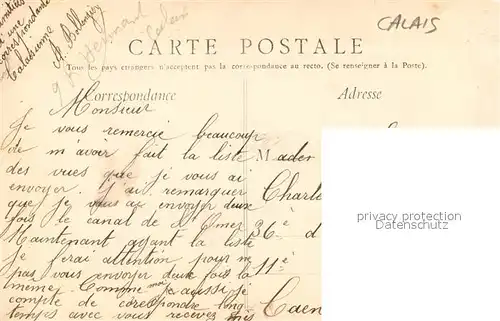 CALAIS
CARTE POSTALE
Tous les pays étrangers n'acceptent pas la correspondance au recto. (Se renseigner à la Poste).
Correspondance
Adresse
une
correspondante
Calaisienne
Monsieur
Je vous remercie beaucoup
de m'avoir fait la liste
des vues que je vous ai
envoyer. J'ai remarquer
que je vous ai envoyer deux
fois le canal de St Omer
Maintenant ayant la liste
je ferai attention pour ne
pas vous envoyer deux fois la
même. Comme moi je aussi je
compte de correspondre long-
temps avec vous recevez mes
Mader
Charle
36è d
11è
Caen
privacy protection
Datenschutz